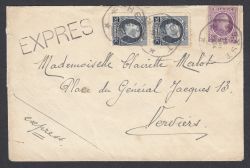 EXPRES
Mademoiselle Clairette Malot
Place du Général Jacques 13
Verviers
express